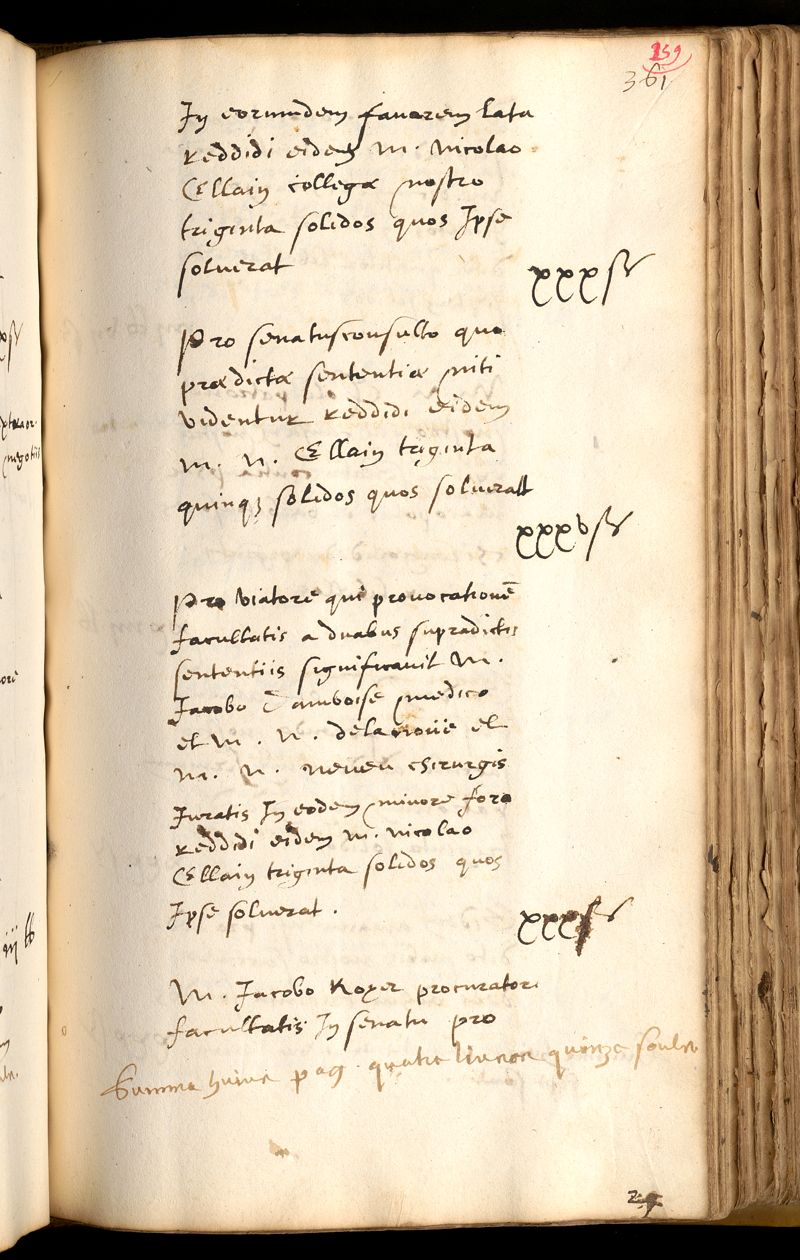 159
361
In eorumdem favorem lata
Reddidi eidem M. Nicolao
Ellain collegæ nostro
triginta solidos quos Ipse
solverat
xxx s
Pro senatusconsulto quo
prædictæ sententiæ niti
videntur Reddidi eidem
M. N. Ellain triginta
quinq; solidos quos solverat
xxxv s
Pro viatore qui provocationē
facultatis a duabus supradictis
sententiis significavit M.
Jacobo Damboise medico
et M. N. delanoüe et
M. N. Neveu chirurgis
Iuratis In eodem minore foro
Reddidi eidem M. Nicolao
Ellain triginta solidos quos
Ipse solverat.
xxx s
M. Jacobo Royer procuratori
facultatis In senatu pro
Summa huius pag. quatre livres quinze soulz